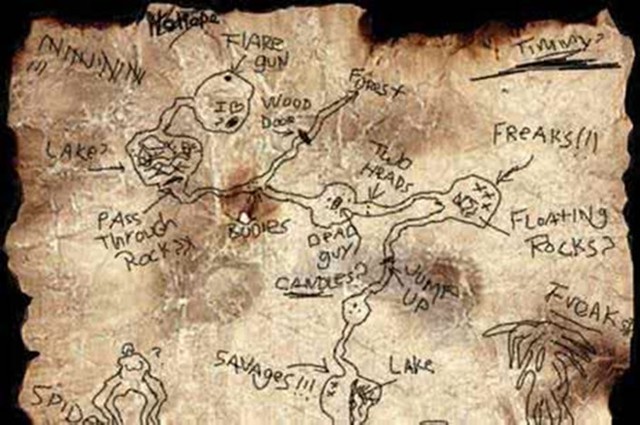 No Hope
Timmy?
FLARE
GUN
FOREST
WOOD
DOOR
FREAKS!!!
LAKE?
TWO
HEADS
PASS
Through
Rock??
BODIES
DEAD
GUY
FLOATING
ROCKS?
CANDLES?
JUMP
UP
FREAKS
SAVAGES!!!
LAKE
?
SPIDE